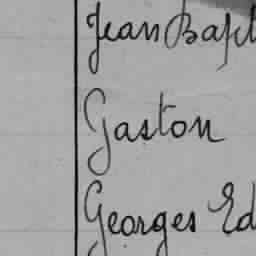 Jean Bapt
Gaston
Georges Ed